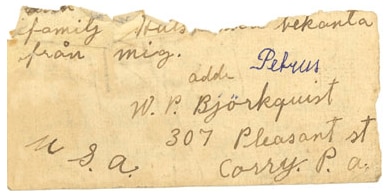 familj Hus bekanta
från mig.
addr Petrus
W. P. Björkquist
307 Pleasant st
U. S. a. Corry. P. a.